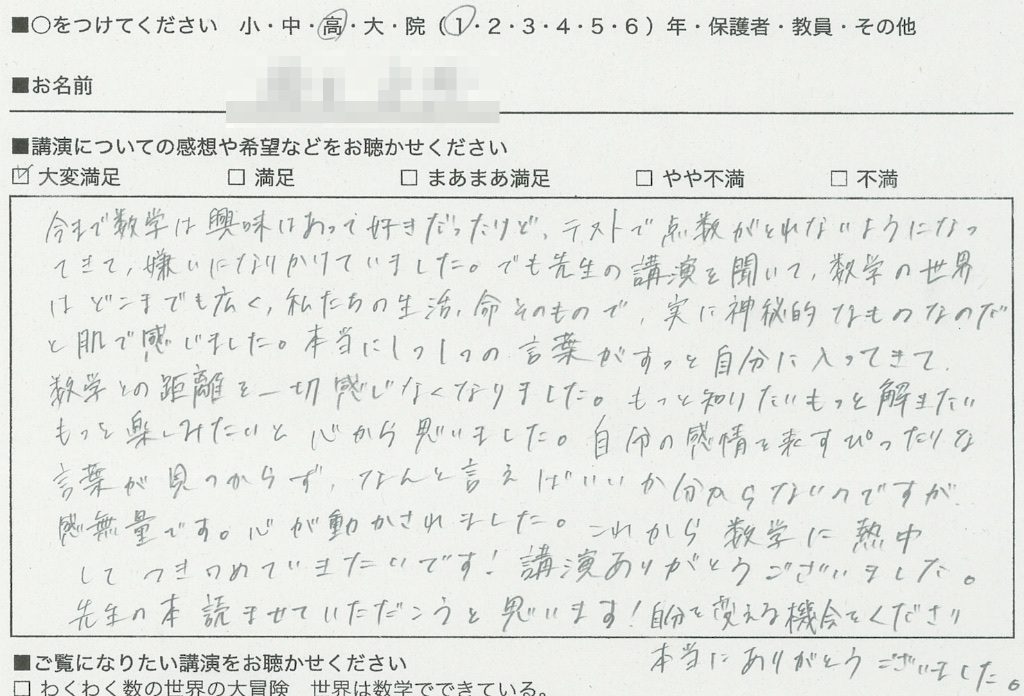 ■○をつけてください 小・中・高・大・院(1・2・3・4・5・6)年・保護者・教員・その他
■お名前
■講演についての感想や希望などをお聴かせください
☑ 大変満足 □ 満足 □ まあまあ満足 □ やや不満 □ 不満
今まで数学は興味はあって好きだったけど、テストで点数がとれないようになっ
てきて、嫌いになりかけていました。でも先生の講演を聞いて、数学の世界
はどこまでも広く、私たちの生活、命そのもので、実に神秘的なものなのだ
と肌で感じました。本当に1つ1つの言葉がすっと自分に入ってきて、
数学との距離を一切感じなくなりました。もっと知りたいもっと解きたい
もっと楽しみたいと心から思いました。自分の感情を表すぴったりな
言葉が見つからず、なんと言えばいいか分からないのですが、
感無量です。心が動かされました。これから数学に熱中
してつきつめていきたいです!講演ありがとうございました。
先生の本読ませていただこうと思います!自分を変える機会をくださり
本当にありがとうございました。
■ご覧になりたい講演をお聴かせください
□ わくわく数の世界の大冒険 世界は数学でできている。